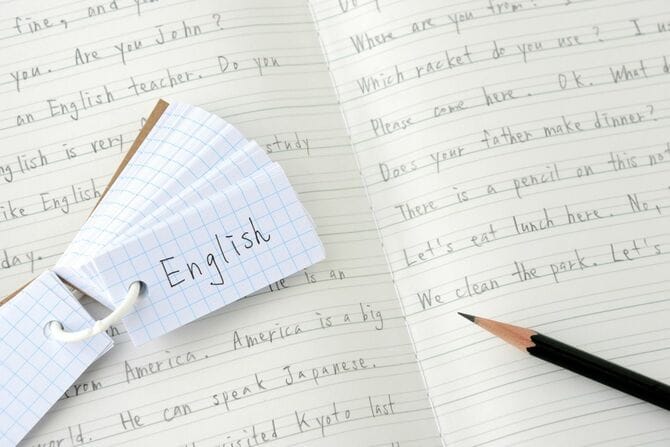 fine, and you
you. Are you John?
an English teacher. Do you
English is very
study
like English
day.
English
He is an
from America. America is a big
world. He can speak Japanese.
visited Kyoto last
Do you
Where are you from? I
Which racket do you use? I u
Please come here. Ok. What d
Does your father make dinner?
There is a pencil on this not
Let's eat lunch here. No,
We clean the park. Let's